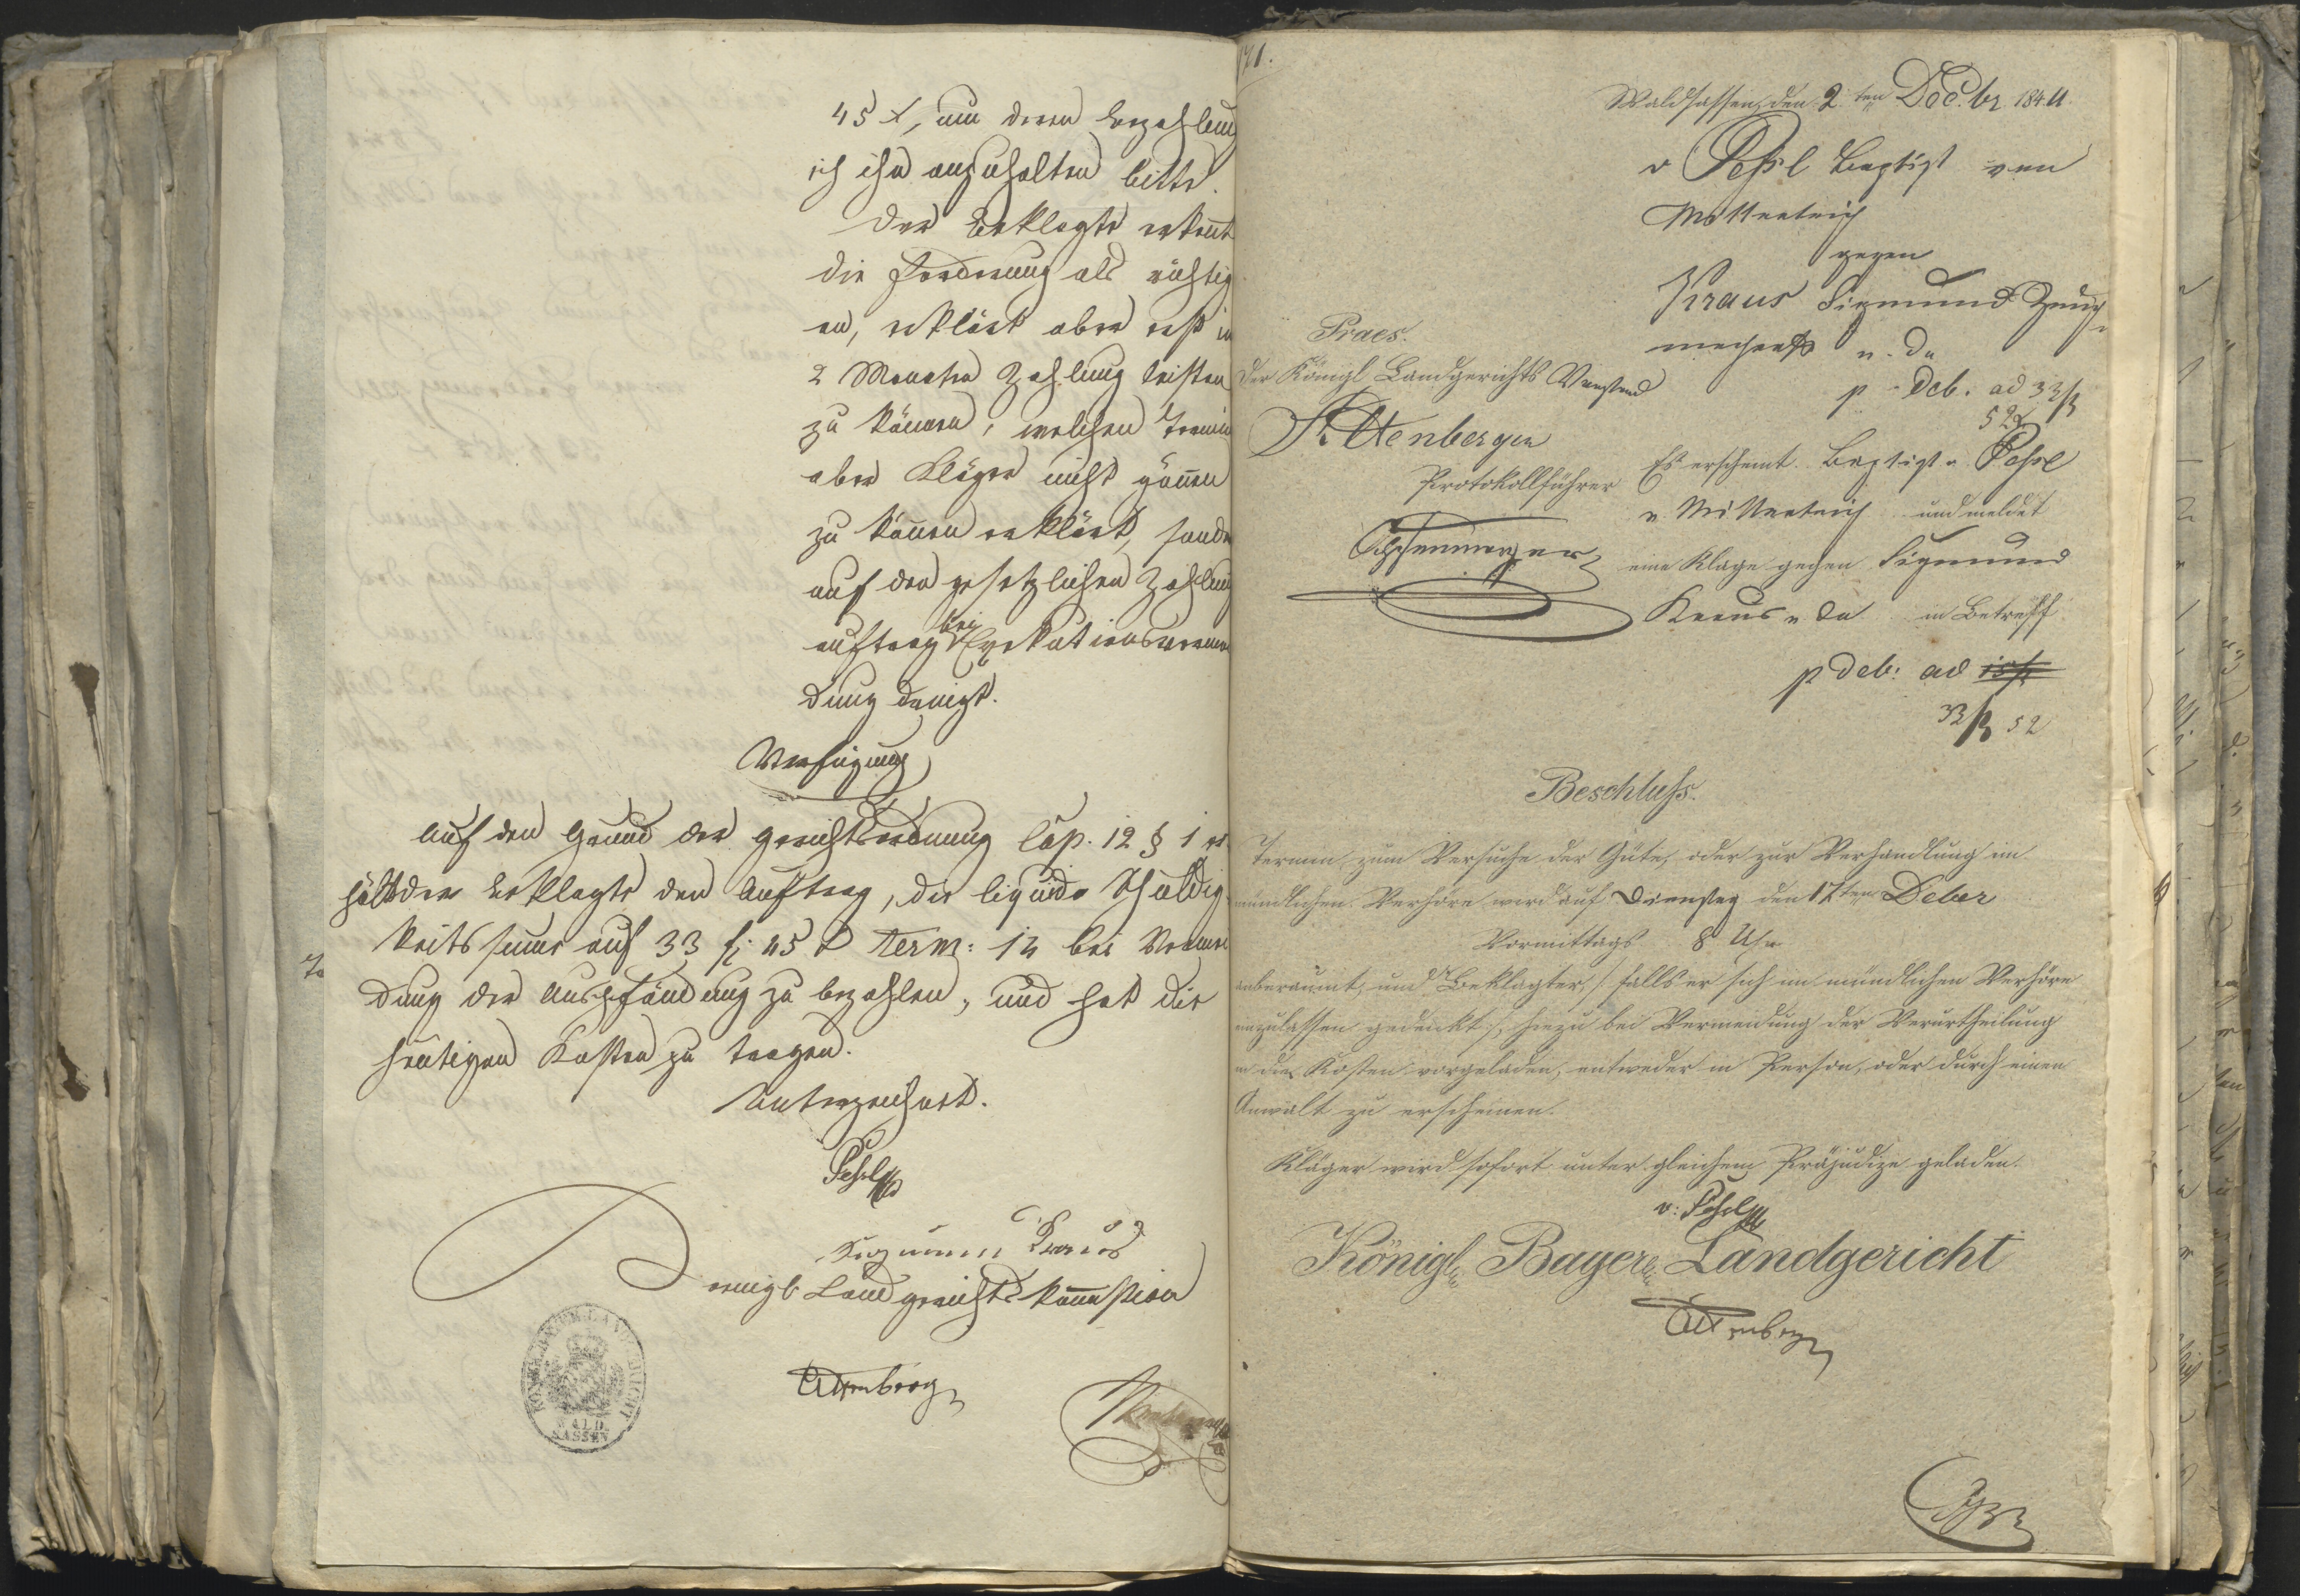 45 x, um deren Bezahlung
ich ihn anzuhalten bitte.
Der Beklagte erkennt
die Forderung als richtig
an, erklärt aber erst in
2 Monaten Zahlung leisten
zu können, welchen Termin
aber Kläger nicht gönnen
zu können erklärt, sondern
auf den gesetzlichen Zahlungs
auftrag bei Exekutionsvermei
dung dringt.
Verfügung
Auf den Grund der Gerichtsordnung Cap. 12 § 1 er
hält der Beklagte den Auftrag, die liquide Schuldig
keitssume auf 33 f 45 x term: 14 bei Vermei
dung der Auspfändung zu bezahlen, und hat die
heutigen Kosten zu tragen.
Unterzeichnet.
Pehsl
Sigmund Kraus
Königl. Landgerichts
Attenberger
KÖNIGL. BAYER. LANDGERICHT
WALD
SASSEN
71.
Waldsassen, den 2ten Decbr. 1844.
v Pehsl Baptist von
Mitterteich
gegen
Kraus Sigmund Zeug
macher v. da
p. deb. ad 33 f
52 x
Praes.
Der Königl Landgerichts Vorstand
Attenberger
Protokollführer
Es erscheint Baptist v. Pehsl
v. Mitterteich und meldet
eine Klage gegen Sigmund
Kraus v. da in Betreff
p deb: ad
33 f 52
Beschluß.
Termin zum Versuche der Güte, oder zur Verhandlung im
mündlichen Verhöre wird auf Dienstag den 17ten Decber
Vormittags 8 Uhr
anberaumt, und Beklagter /: falls er sich im mündlichen Verhöre
einzulassen gedenkt :/ hiezu bei Vermeidung der Verurtheilung
in die Kosten vorgeladen, entweder in Person, oder durch einen
Anwalt zu erscheinen.
Kläger wird sofort unter gleichem Präjudize geladen.
v: Pehsl
Königl. Bayer. Landgericht
Attenberger